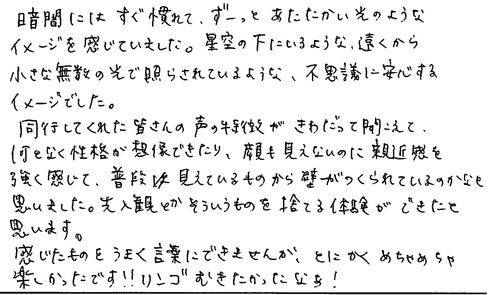 暗闇にはすぐ慣れて、ずーっとあたたかい光のような
イメージを感じていました。星空の下にいるような、遠くから
小さな無数の光で照らされているような、不思議に安心する
イメージでした。
同行してくれた皆さんの声の特徴がきわだって聞こえて、
何となく性格が想像できたり、顔も見えないのに親近感を
強く感じて、普段は見えているものから壁がつくられているのかなと
思いました。先入観とかそういうものを捨てる体験ができたと
思います。
感じたものをうまく言葉にできませんが、とにかくめちゃめちゃ
楽しかったです!!リンゴむきたかったなぁ!